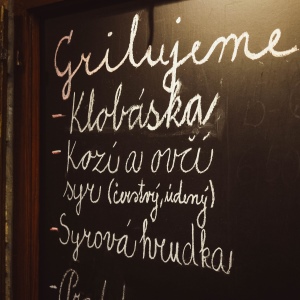 Grilujeme
- Klobáska
- Kozí a ovčí
syr (čerstvý, údený)
- Syrová hrudka